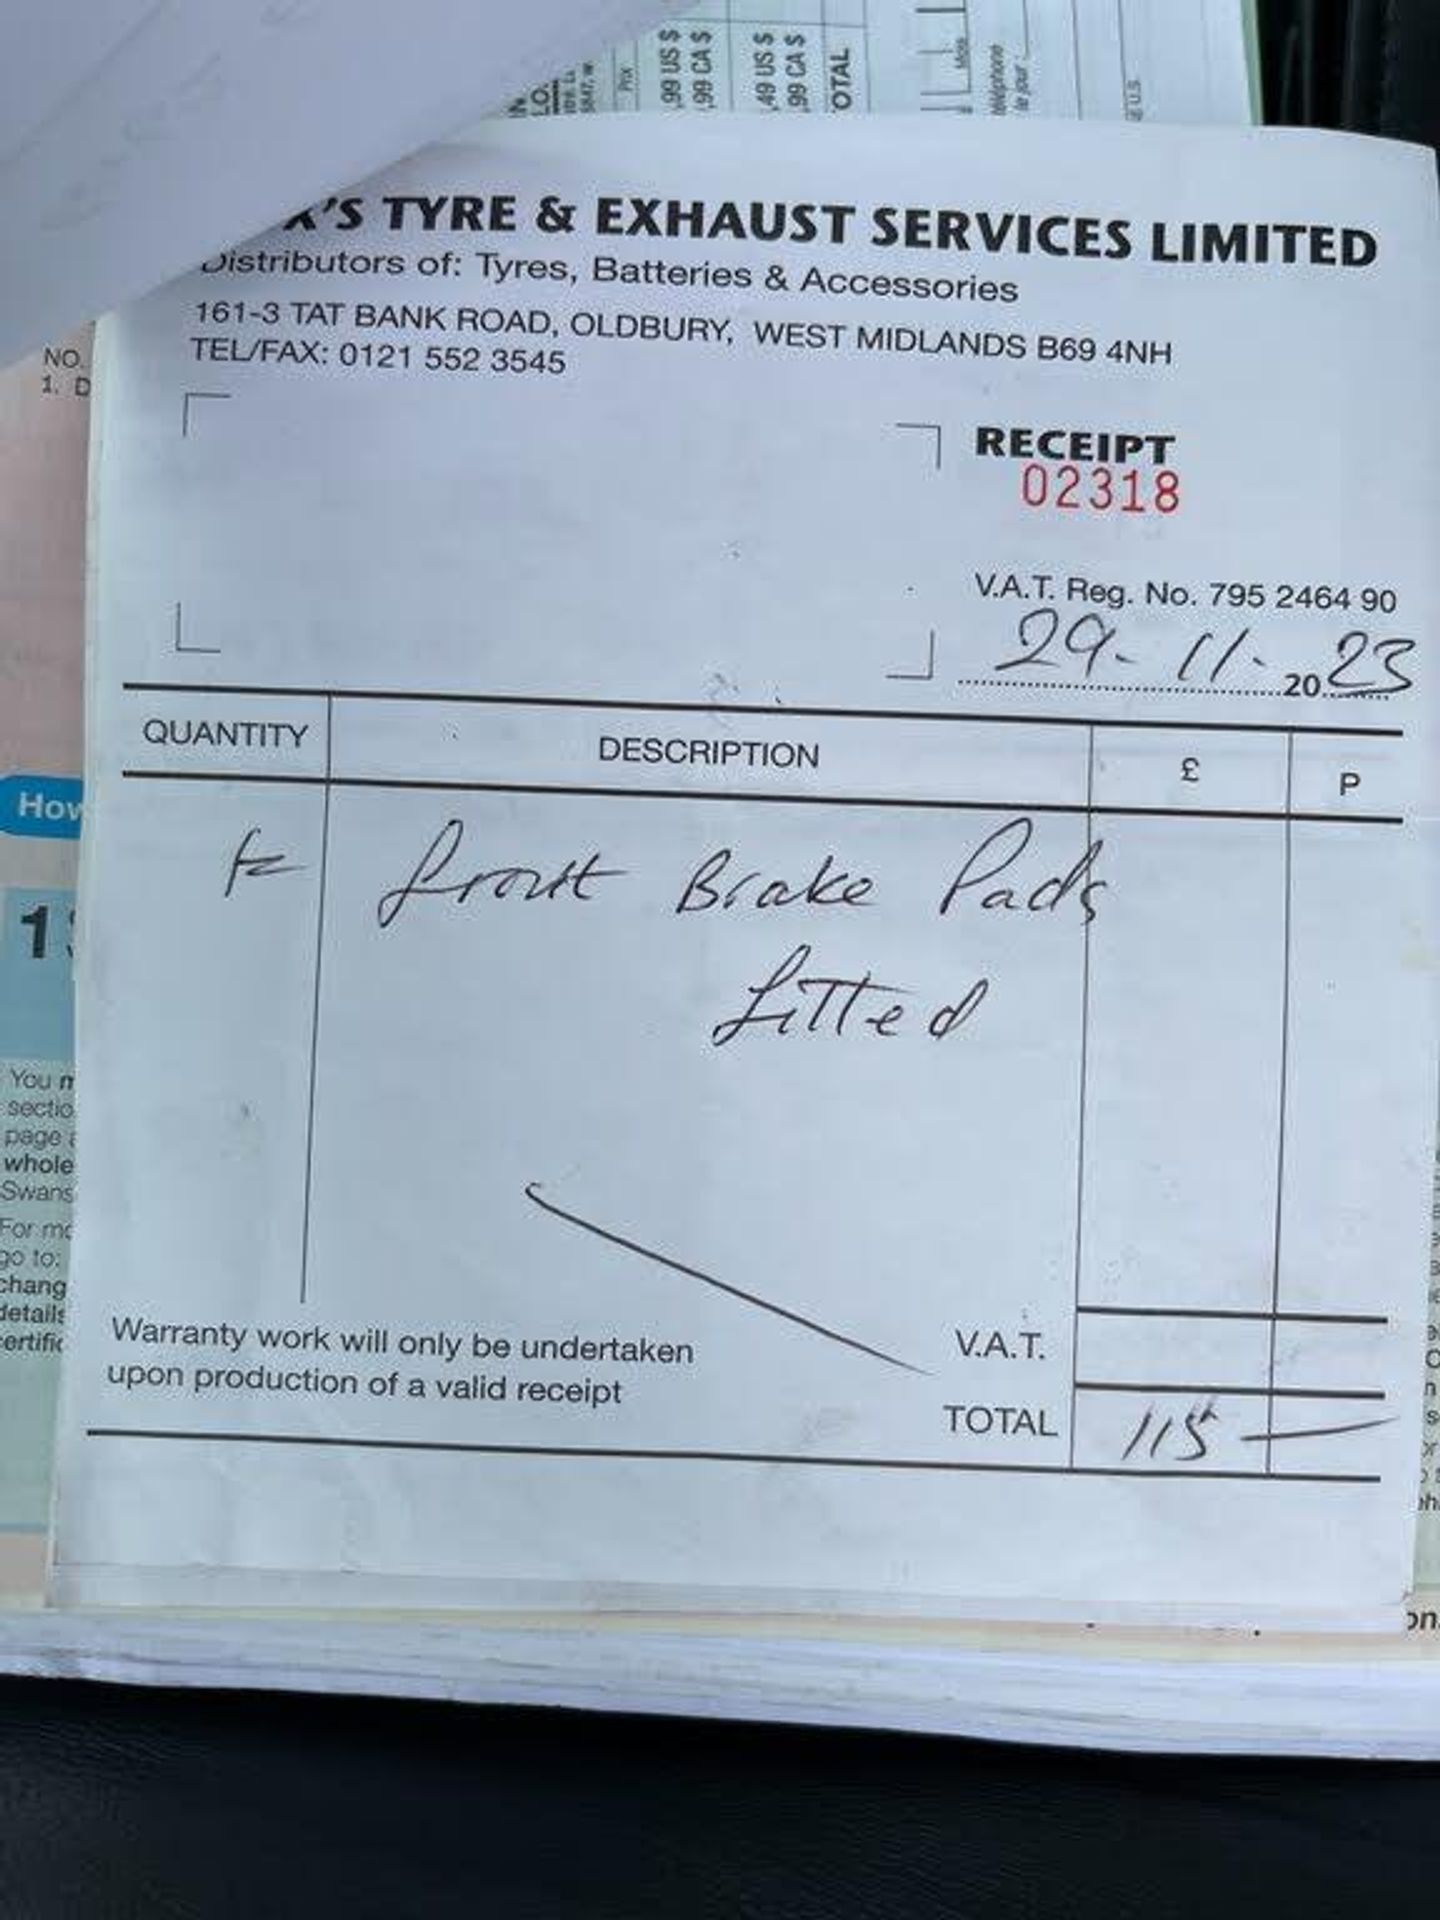 ,99 US $
,99 CA $
,49 US $
,99 CA $
OTAL
X'S TYRE & EXHAUST SERVICES LIMITED
Distributors of: Tyres, Batteries & Accessories
161-3 TAT BANK ROAD, OLDBURY, WEST MIDLANDS B69 4NH
TEL/FAX: 0121 552 3545
NO.
1. D
RECEIPT
02318
V.A.T. Reg. No. 795 2464 90
29-11-2023
QUANTITY DESCRIPTION £ P
How
front Brake Pads
fitted
You m
sectio
page
whole
Swans
For mo
go to:
chang
details
certific
Warranty work will only be undertaken
upon production of a valid receipt
V.A.T.
TOTAL 115 —
on.